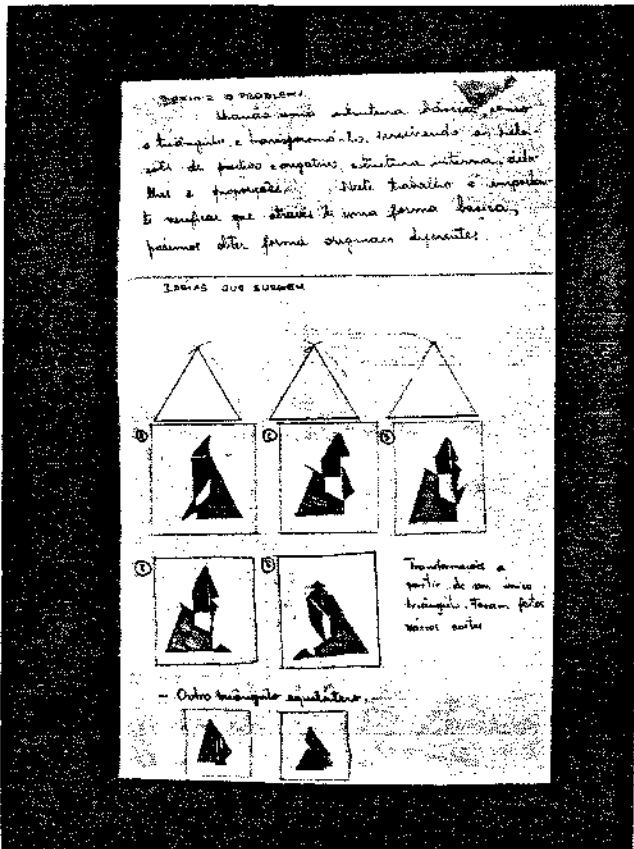 DEFINE O PROBLEMA
Usando uma estrutura básica, como
o triângulo, e transformá-los, envolvendo as
de positivo e negativo, estrutura interna,
e proporções. Neste trabalho é importan
te verificar que através de uma forma básica,
podemos obter formas originais diferentes.
IDEIAS QUE SURGEM
B C D
E
Transformações a
partir de um único
triângulo. Foram feitos
vários cortes
- Outro triângulo equilátero. -